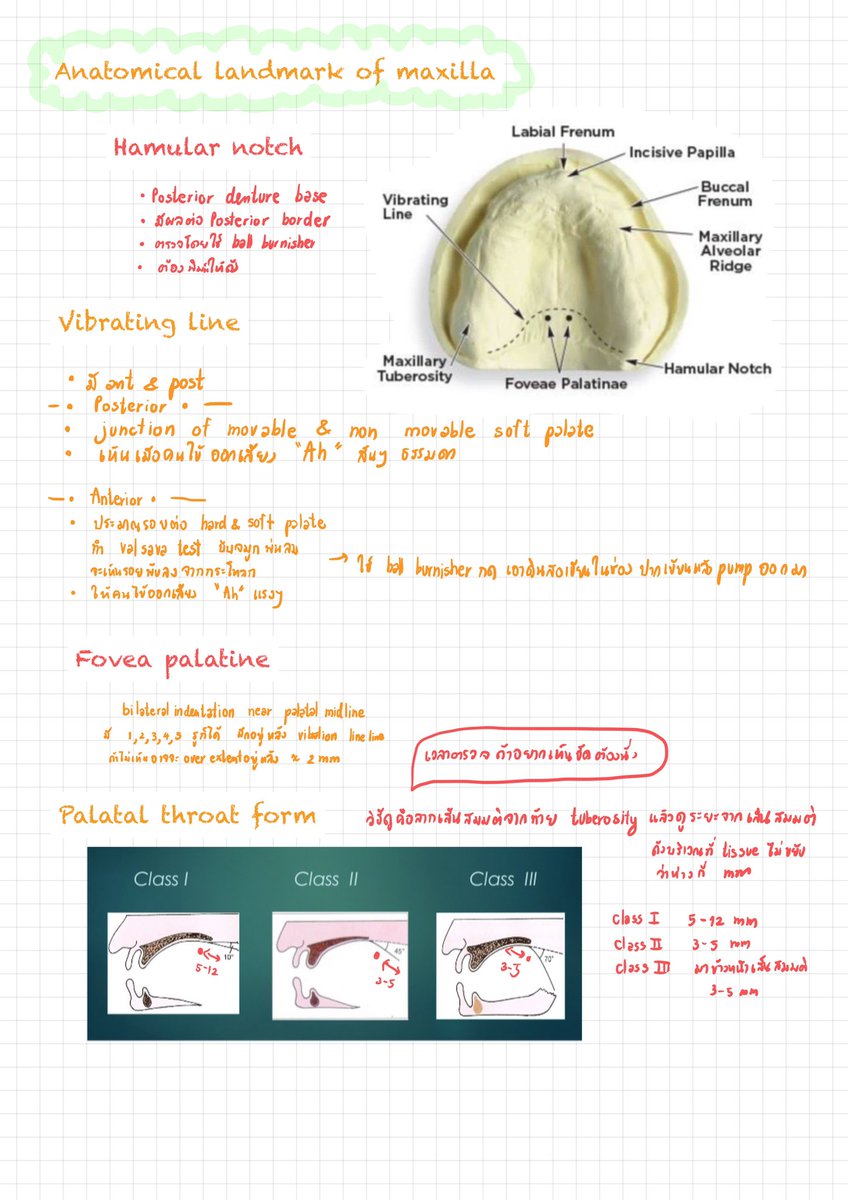 Anatomical landmark of maxilla
Hamular notch
• Posterior denture base
• มีผลต่อ Posterior border
• ตรวจโดยใช้ ball burnisher
• ต้องพิมพ์ให้ติด
Labial Frenum
Incisive Papilla
Buccal
Frenum
Vibrating
Line
Maxillary
Alveolar
Ridge
Maxillary
Tuberosity
Foveae Palatinae
Hamular Notch
Vibrating line
• มี ant & post
— • Posterior • —
• junction of movable & non movable soft palate
• เห็นเมื่อคนไข้ ออกเสียง "Ah" สั้นๆ ธรรมดา
— • Anterior • —
• ประมาณรอยต่อ hard & soft palate
ทำ valsava test บีบจมูกพ่นลม
จะเห็นรอยพับลง จากกระโหลก
→ ใช้ ball burnisher กด เอาดินสอเขียนในช่อง ปากเขียนแล้ว pump ออกมา
• ให้คนไข้ออกเสียง "Ah" แรงๆ
Fovea palatine
bilateral indentation near palatal midline
มี 1,2,3,4,5 รูก็ได้ มักอยู่หลัง vibation line
ถ้าไม่เห็นอาจจะ over extent อยู่หลัง ≈ 2 mm
เวลาตรวจ ถ้าอยากเห็นชัด ต้องนั่ง
Palatal throat form
วิธีดูคือลากเส้นสมมติจากท้าย tuberosity แล้วดูระยะจากเส้นสมมติ
ถึงบริเวณที่ tissue ไม่ขยับ
ว่าห่างกี่ mm
Class I
Class II
Class III
5-12
10°
3-5
45°
3-5
70°
Class I 5-12 mm
Class II 3-5 mm
Class III มาข้างหน้าเส้นสมมติ
3-5 mm